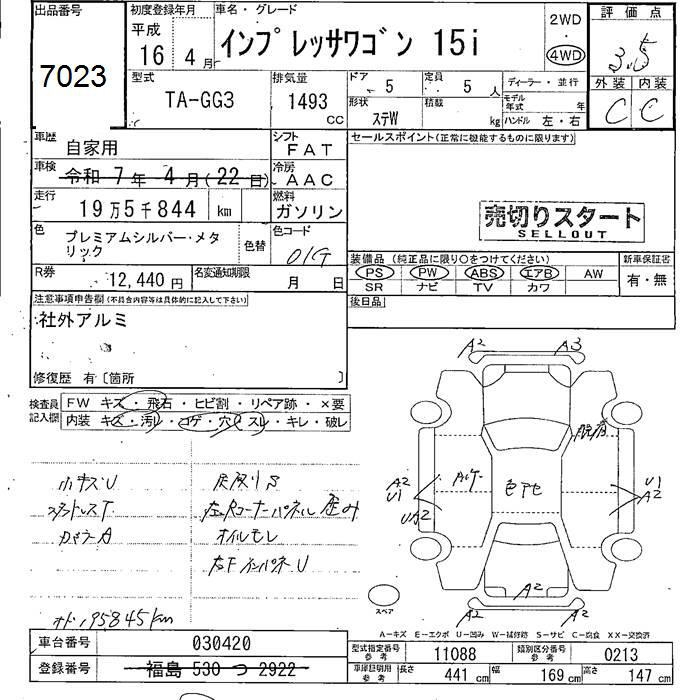 出品番号
7023
初度登録年月
平成
16年 4月
車名・グレード
インプレッサワゴン 15i
2WD
・
4WD
評価点
3.5
外装 内装
C C
型式
TA-GG3
排気量
1493
cc
ドア
5
定員
5人
ディーラー・並行
形状
ステW
積載
kg
モデル年式 年
ハンドル 左・右
車歴
自家用
シフト
FAT
車検
令和 7年 4月(22日)
冷房
AAC
走行
19万5千844 km
燃料
ガソリン
色
プレミアムシルバー・メタリック
色替
色コード
01G
R券
12,440円
名変通知期限
月 日
セールスポイント(正常に機能するものに限ります)
売切りスタート
SELLOUT
装備品 (純正品に限り○をつけてください)
PS PW ABS エアB AW
SR ナビ TV カワ
新車保証書
有・無
後日品
注意事項申告欄(不具合内容等は具体的に記入して下さい)
社外アルミ
修復歴 有〔箇所 〕
検査員記入欄
FW キズ・飛石・ヒビ割・リペア跡・×要
内装 キズ・汚レ・コゲ・穴・スレ・キレ・破レ
小キズU
スタッドレスT
カメラA
灰皿リS
オイルモレ
右Fインパネ U
A2 A3
A2
U1
UA2
U1
A2
色アセ
A2
A2
スペア
A-キズ E-エクボ U-凹み W-補修跡 S-サビ C-腐食 XX-交換済
車台番号
030420
登録番号
福島 530 つ 2922
型式指定番号
参考
11088
類別区分番号
参考
0213
車庫証明用
参考
長さ 441cm
幅 169cm
高さ 147cm